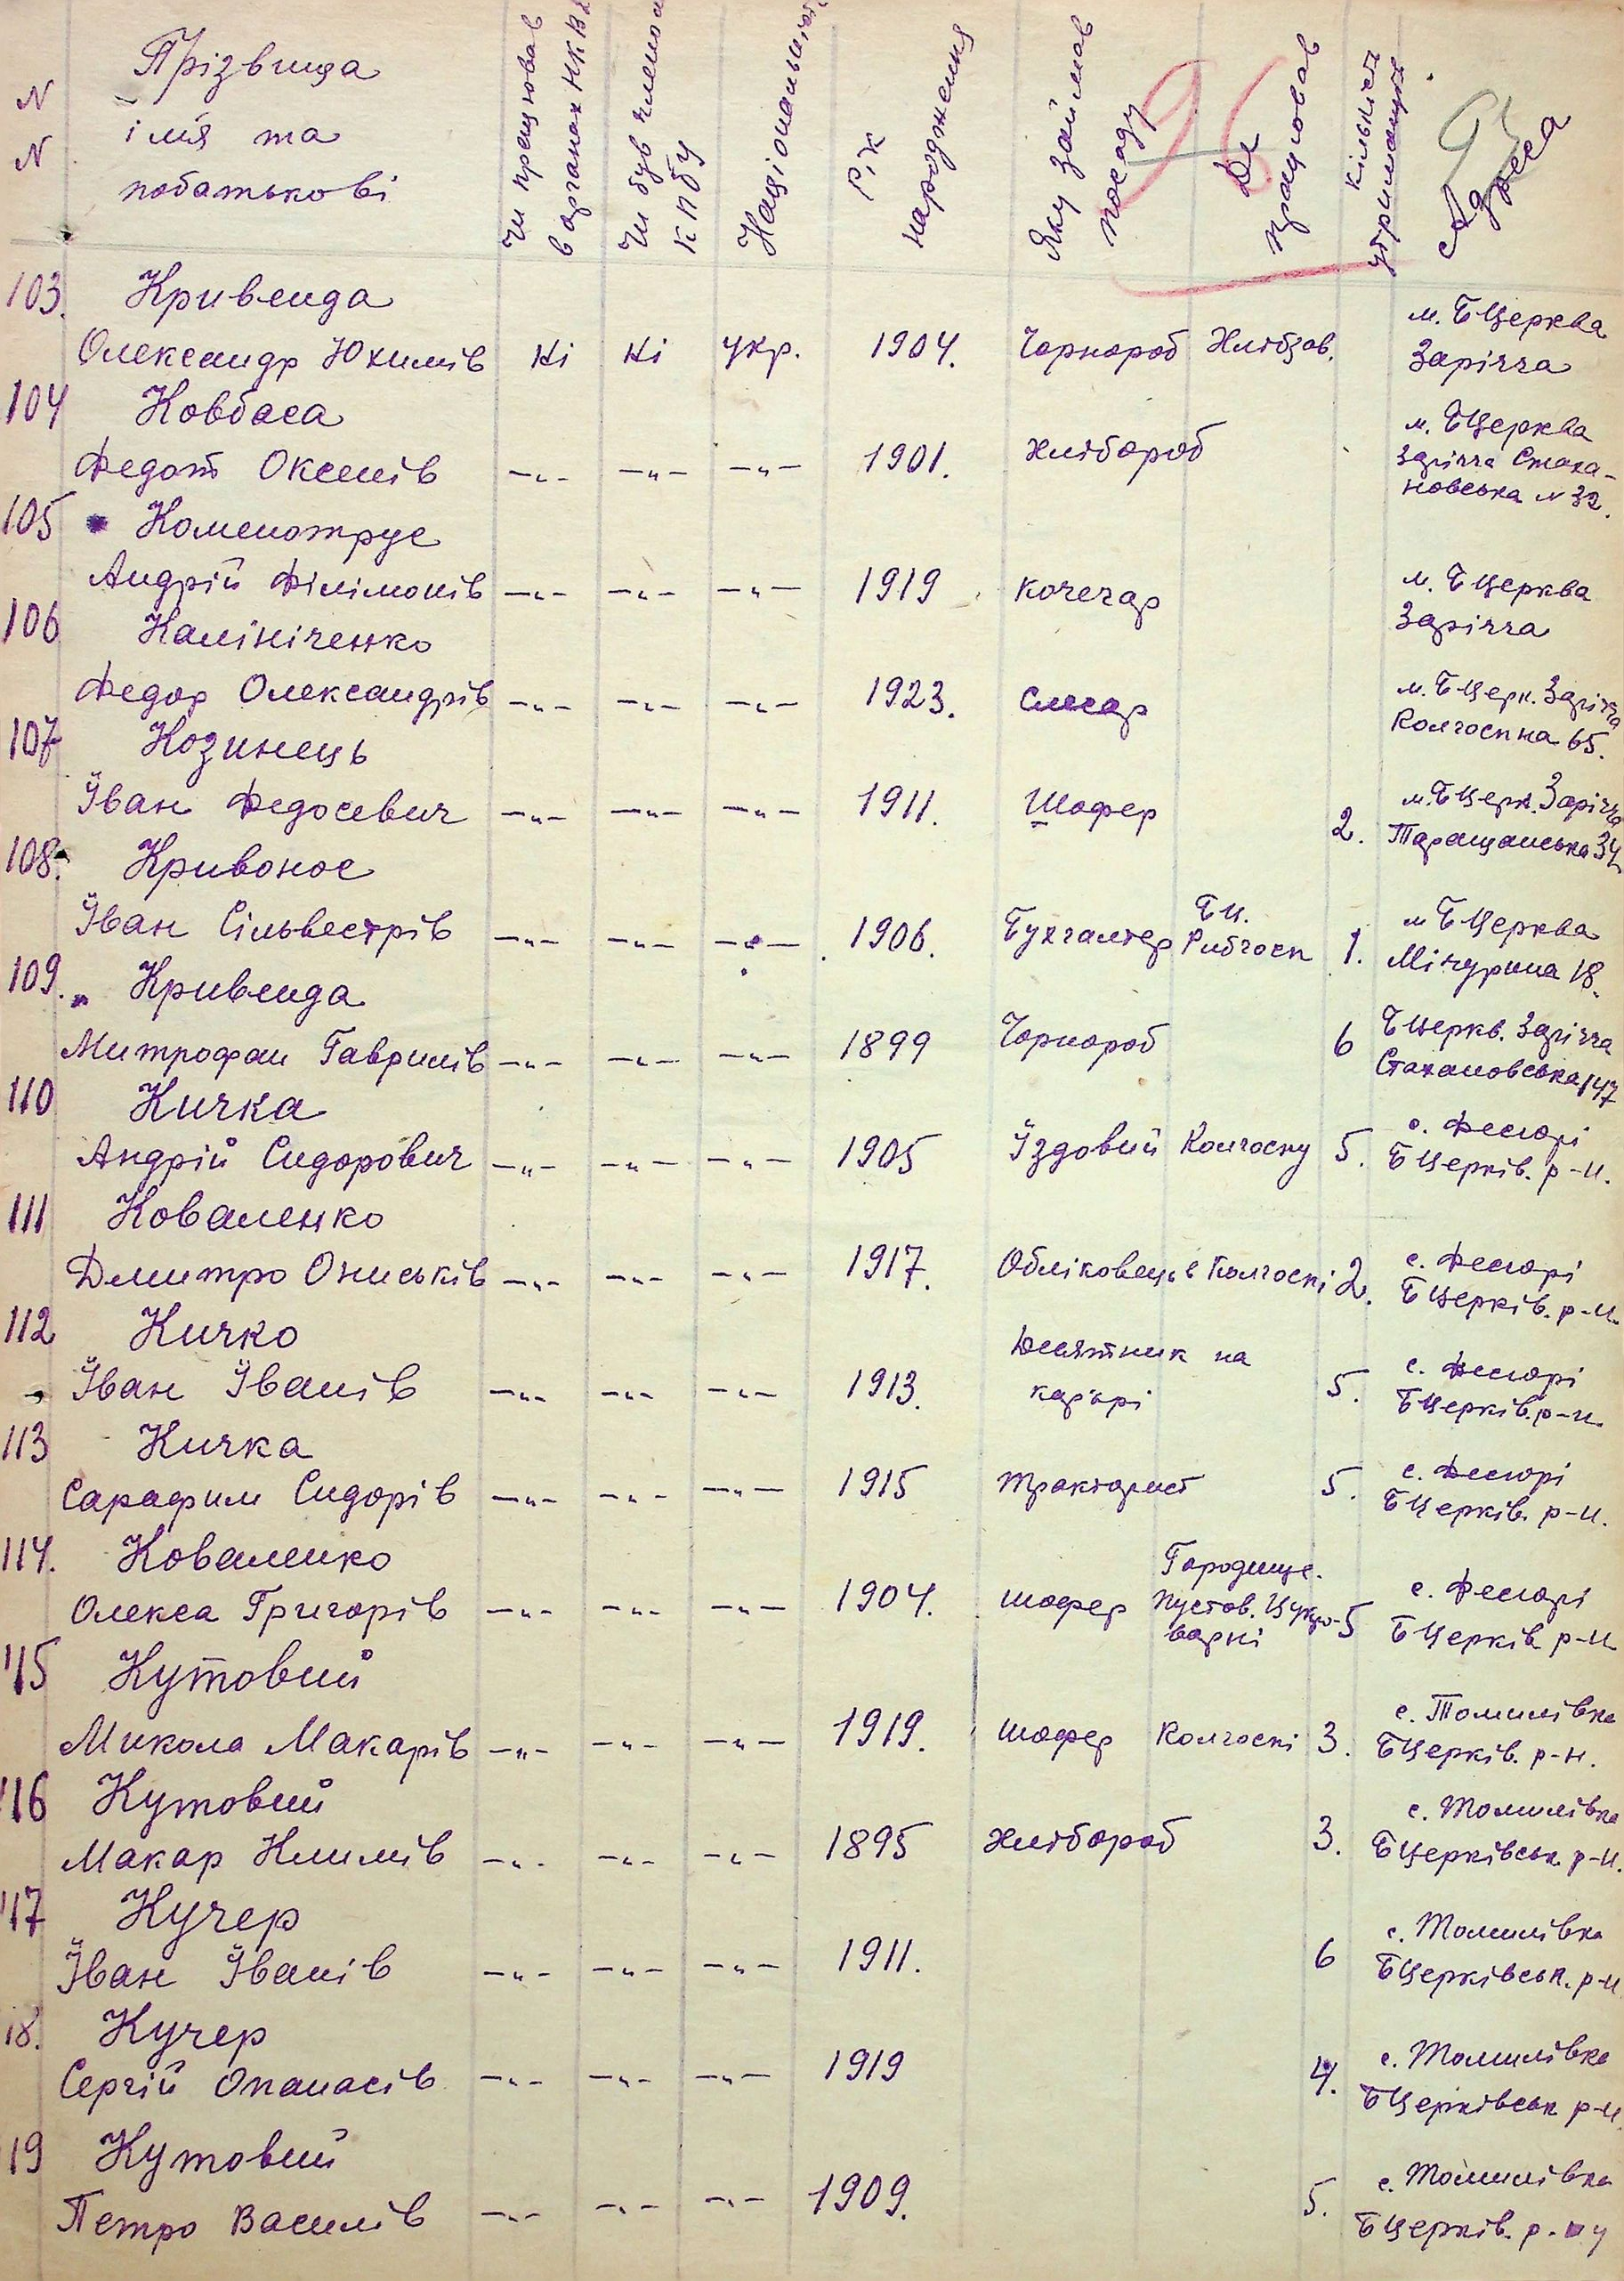 N N
Прізвища
імя та
побатькові
Чи працював
в органах НКВД
Чи був членом
КПбУ
Національність
Рік
народження
Яку займав
посаду
Де
працював
Кількість
утриманців
Адреса
96
103. Кривенда
м. БЦерква
Олександр Юхимів Ні Ні укр. 1904. Чорнороб Хлібзав. Заріччя
104 Ковбаса
м. БЦерква
Федот Оксенів —„— —„— —„— 1901. хлібороб Заріччя Стаха-
новська N 32.
105 Коменотрус
Андрій Філімонів —„— —„— —„— 1919 кочегар м. БЦерква
Заріччя
106 Калініченко
Федор Олександрів —„— —„— —„— 1923. Слесар м. БЦерк. Заріччя
Колгоспна 65.
107 Козинець
Іван Федосевич —„— —„— —„— 1911. Шофер 2. м. БЦерк. Заріччя
Таращанська 34
108. Кривонос
Іван Сільвестрів —„— —„— —„— 1906. Бухгалтер БЦ. Рибгосп 1. м БЦерква
Мічурина 18.
109. Кривенда
Митрофан Гаврилів —„— —„— —„— 1899 Чорнороб 6 БЦеркв. Заріччя
Стахановська 147
110 Кичка
Андрій Сидорович —„— —„— —„— 1905 Їздовий Колгоспу 5. с. Фесюрі
БЦерків. р-н.
111 Коваленко
Дмитро Ониськів —„— —„— —„— 1917. Обліковець в Колгоспі 2. с. Фесюрі
БЦерків. р-н.
112 Кичко
Іван Іванів —„— —„— —„— 1913. Десятник на
карєрі 5. с. Фесюрі
БЦерків. р-н.
113 Кичка
Сарафим Сидорів —„— —„— —„— 1915 тракторист 5. с. Фесюрі
БЦерків. р-н.
114. Коваленко
Олекса Григорів —„— —„— —„— 1904. шофер Городище.
Пустов. Цукро-
варні 5 с. Фесюрі
БЦерків р-н
115 Кутовий
Микола Макарів —„— —„— —„— 1919. шофер Колгоспі 3. с. Томилівка
БЦерків. р-н.
116 Кутовий
Макар Климів —„— —„— —„— 1895 хлібороб 3. с. Томилівка
БЦерківськ. р-н.
117 Кучер
Іван Іванів —„— —„— —„— 1911. 6 с. Томилівка
БЦерківськ. р-н
18. Кучер
Сергій Опанасів —„— —„— —„— 1919 4. с. Томилівка
БЦерківськ р-н
19 Кутовий
Петро Василів —„— —„— —„— 1909. 5. с. Томилівка
БЦерків. р.